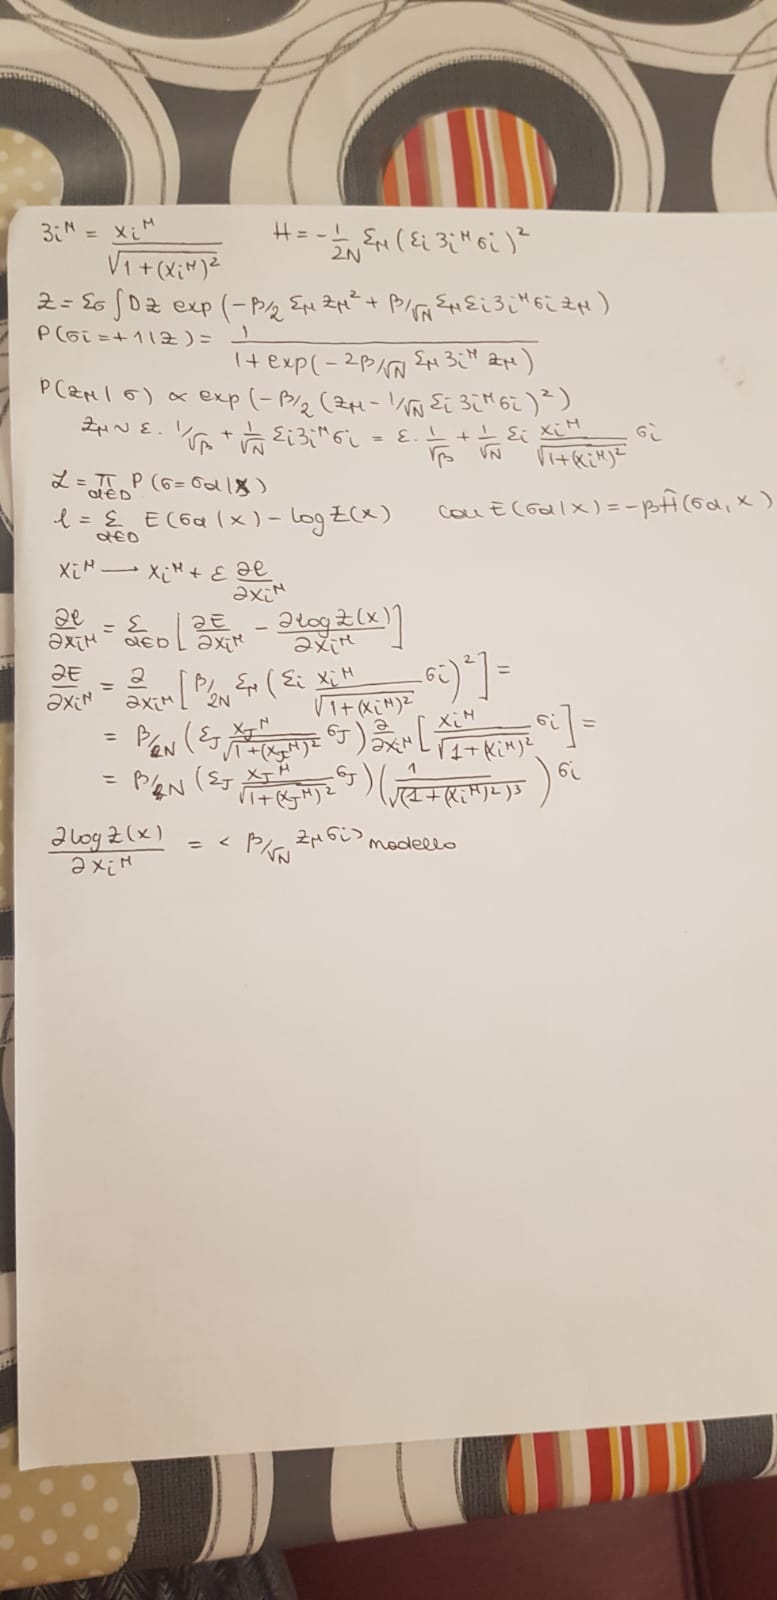 ξi^μ = xi^μ / √(1+(xi^μ)²)    H = -1/2N Σμ (Σi ξi^μ σi)²
Z = Σσ ∫Dz exp(-β/2 Σμ zμ² + β/√N Σμ Σi ξi^μ σi zμ)
P(σi=+1|z) = 1 / (1+exp(-2β/√N Σμ ξi^μ zμ))
P(zμ|σ) ∝ exp(-β/2 (zμ - 1/√N Σi ξi^μ σi)²)
zμ ~ ε · 1/√β + 1/√N Σi ξi^μ σi = ε · 1/√β + 1/√N Σi xi^μ / √(1+(xi^μ)²) σi
L = π_{α∈D} P(σ=σα|x)
l = Σ_{α∈D} E(σα|x) - log Z(x)    con E(σα|x) = -βĤ(σα, x)
xi^μ ⟶ xi^μ + ε ∂l/∂xi^μ
∂l/∂xi^μ = Σ_{α∈D} [∂E/∂xi^μ - ∂log Z(x)/∂xi^μ]
∂E/∂xi^μ = ∂/∂xi^μ [β/2N Σμ (Σi xi^μ / √(1+(xi^μ)²) σi)²] =
= β/N (ΣJ xJ^μ / √(1+(xJ^μ)²) σJ) ∂/∂xi^μ [xi^μ / √(1+(xi^μ)²) σi] =
= β/N (ΣJ xJ^μ / √(1+(xJ^μ)²) σJ) (1 / √((1+(xi^μ)²)³)) σi
∂log Z(x)/∂xi^μ = < β/√N zμ σi > modello